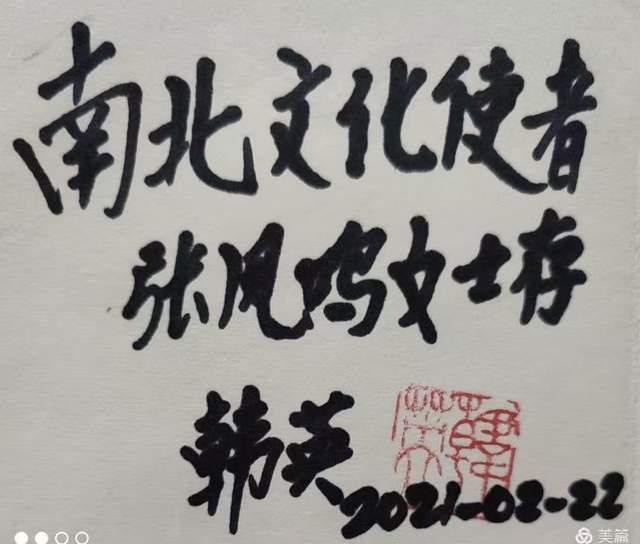 南北文化使者
张凤鸣女士存
韩英
2021-02-22
美篇